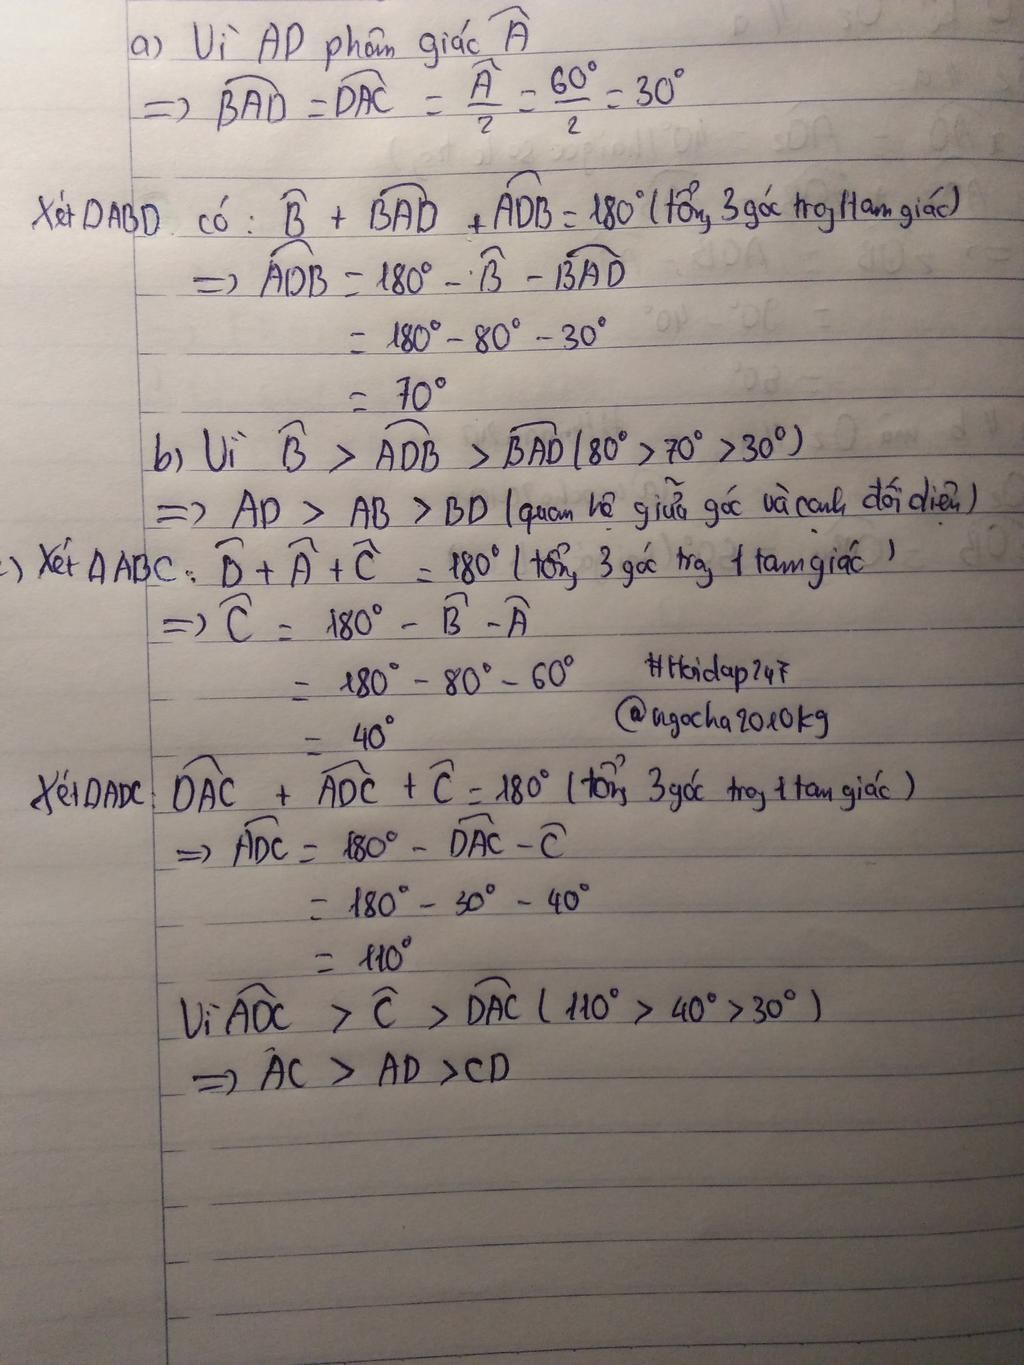 a) Vì AD phân giác Â
=> BAD = DAC = Â/2 = 60°/2 = 30°
Xét ΔABD có: B̂ + BAD + ADB = 180° (tổng 3 góc trog 1 tam giác)
=> ADB = 180° - B̂ - BAD
= 180° - 80° - 30°
= 70°
b) Vì B̂ > ADB > BAD (80° > 70° > 30°)
=> AD > AB > BD (quan hệ giữa góc và cạnh đối diện)
c) Xét ΔABC: B̂ + Â + Ĉ = 180° (tổng 3 góc trog 1 tam giác)
=> Ĉ = 180° - B̂ - Â
= 180° - 80° - 60°
= 40°
#Hoidap247
@ngocha2010kg
Xét ΔADC: DAC + ADC + Ĉ = 180° (tổng 3 góc trog 1 tam giác)
=> ADC = 180° - DAC - Ĉ
= 180° - 30° - 40°
= 110°
Vì ADC > Ĉ > DAC (110° > 40° > 30°)
=> AC > AD > CD